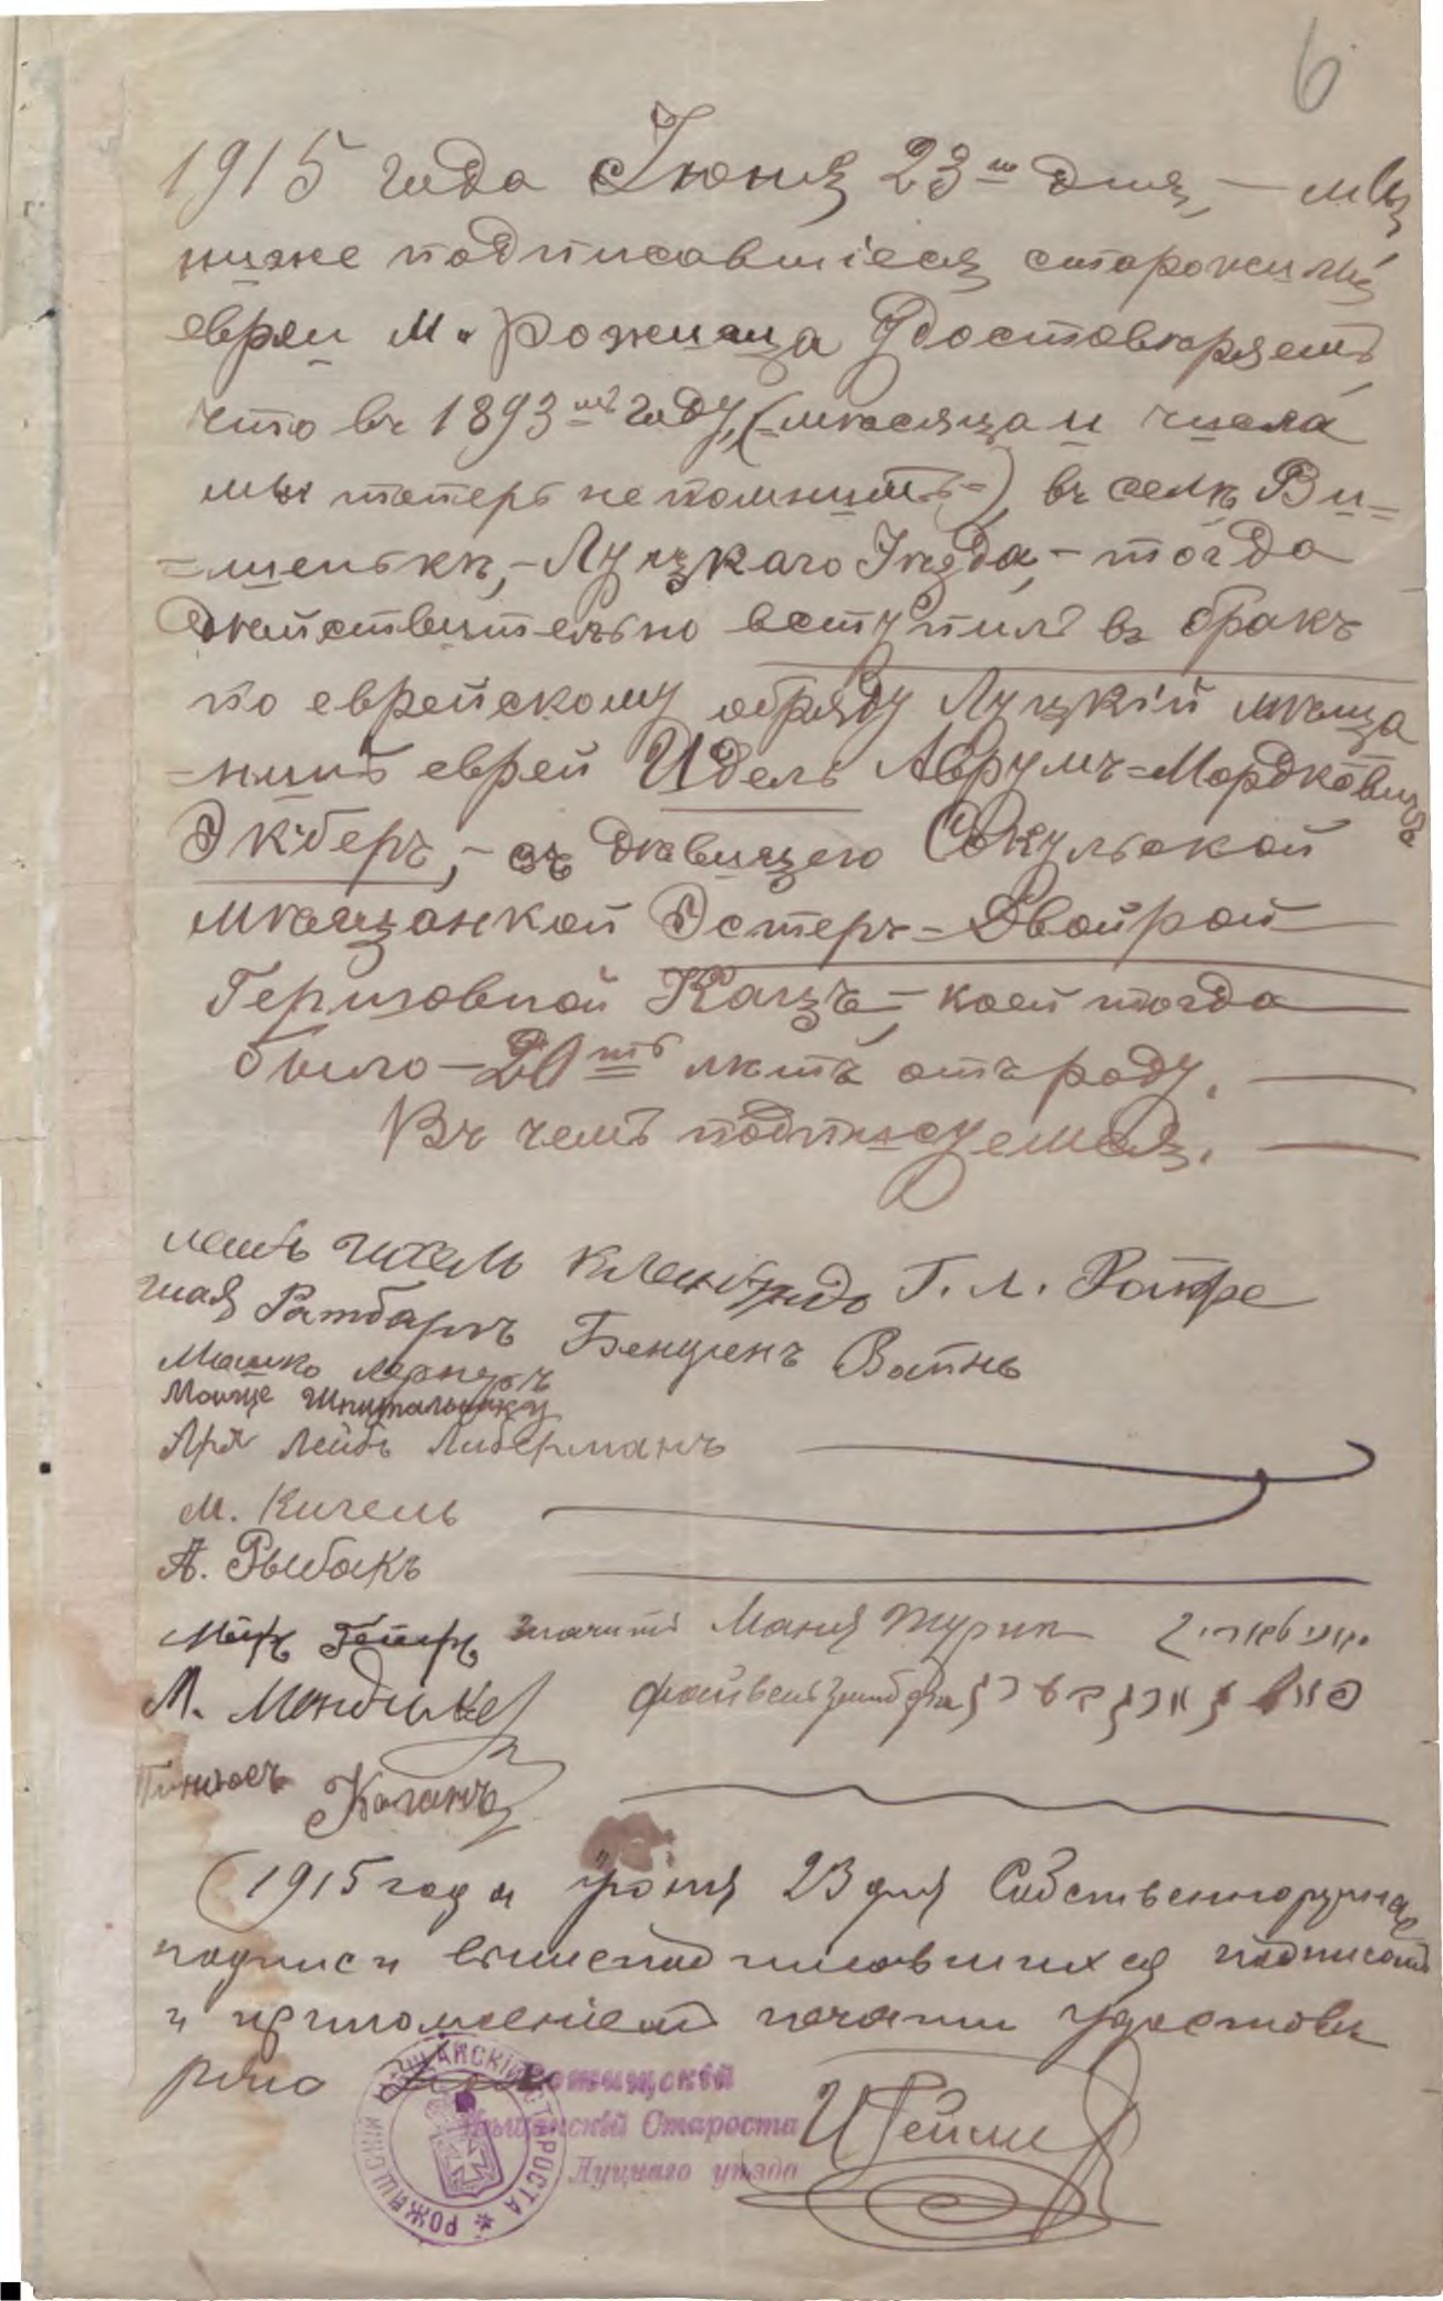 6
1915 года Iюня 23го дня, — мы
ниже подписавшiеся старожилы
евреи м. Рожища удостоверяемъ
что въ 1893мъ году, (месяца и числа
мы теперь не помнимъ=), въ селѣ Ви=
=шенькѣ, – Луцкаго Уѣзда, – тогда
действительно вступилъ въ бракъ
по еврейскому обряду Луцкiй мѣща
=нинъ еврей Идель Аврумъ=Мордковичъ
Экберъ, – съ дѣвицею Сокульской
мѣщанкой Эстеръ=Двойрой
Гершовной Кацъ, – коей тогда
было – 20ть лѣтъ отъ роду. —
Въ чемъ подписуемся. —
Г. Л.
Шая Ратбаргъ Бенценъ
Мошко Лернеръ
Моще
Аря Лейбъ Либерманъ
М. Кигель
А. Рыбакъ
Маня Турик
М.
Пинхосъ Коганъ
1915 года iюня 23 дня Собственноручная
подписи вышеподписавшихся подписомъ
и приложенiемъ печати удостове
рено
Рожищскiй
Мѣщанскiй Староста
Луцкаго уѣзда
МѢЩАНСКIЙ СТАРОСТА * РОЖИЩСКIЙ